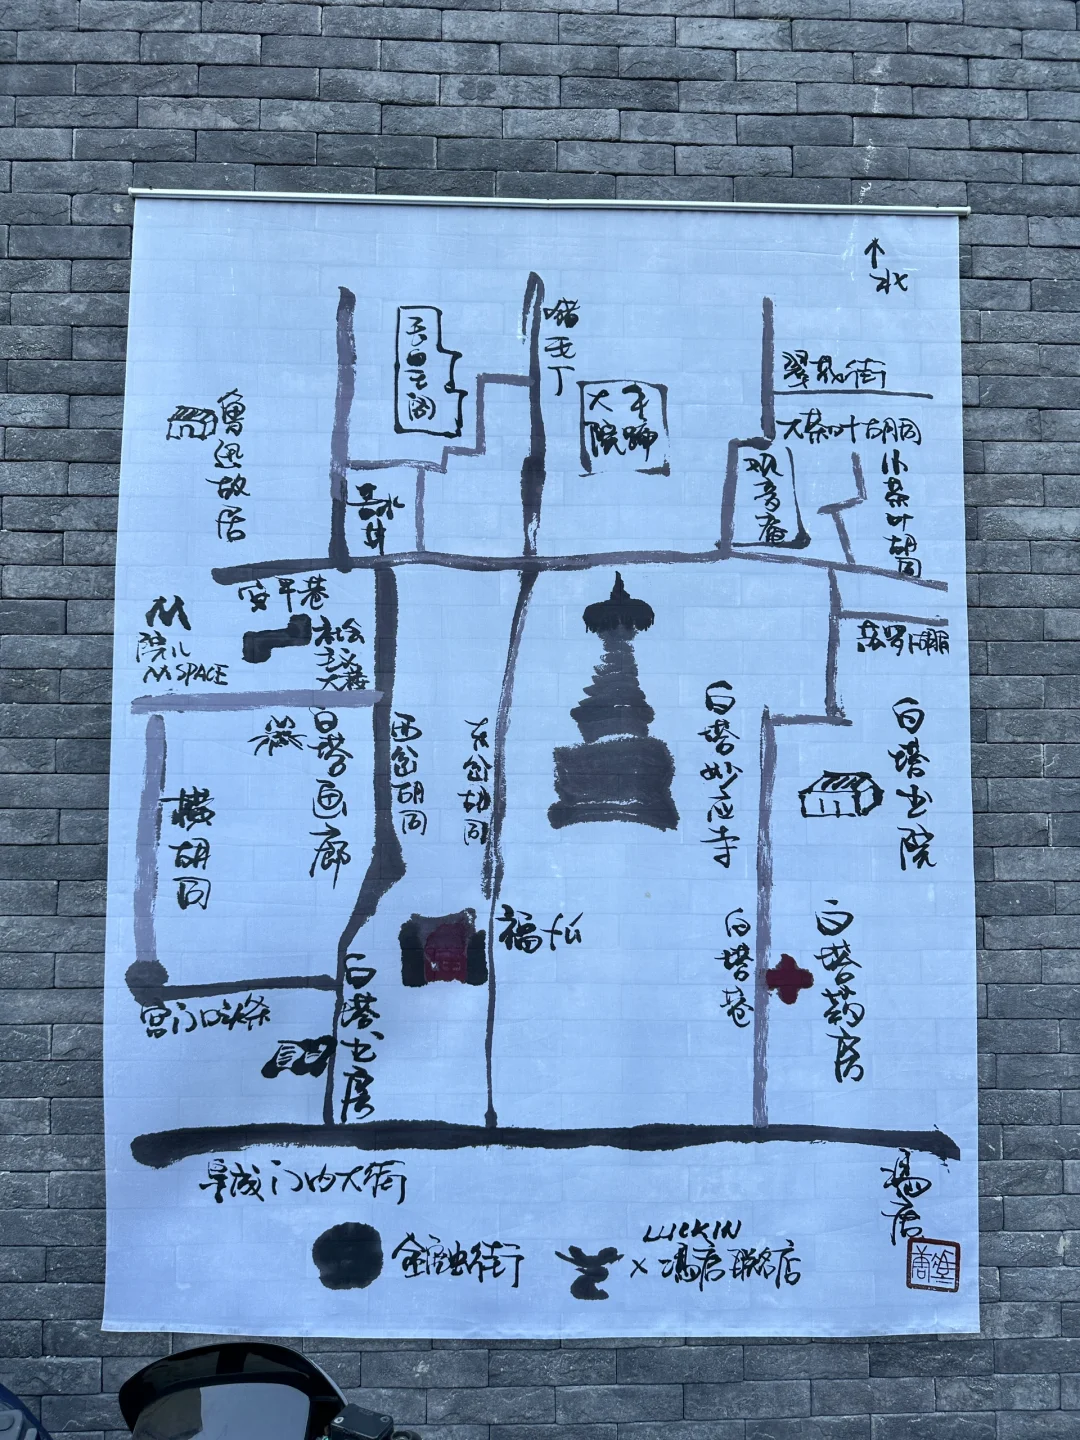 ↑
北
翠花街
大茶叶胡同
小茶叶胡同
观音庵
玉皇阁
大院
鲁迅故居
苦水井
安平巷
院儿
M SPACE
社会主义大楼
白塔画廊
西岔胡同
东岔胡同
白塔妙应寺
苏罗卜胡同
横胡同
福仙
白塔巷
白塔药房
宫门口头条
白塔书房
阜成门内大街
冯唐
金融街
LUCKIN
×冯唐联名店